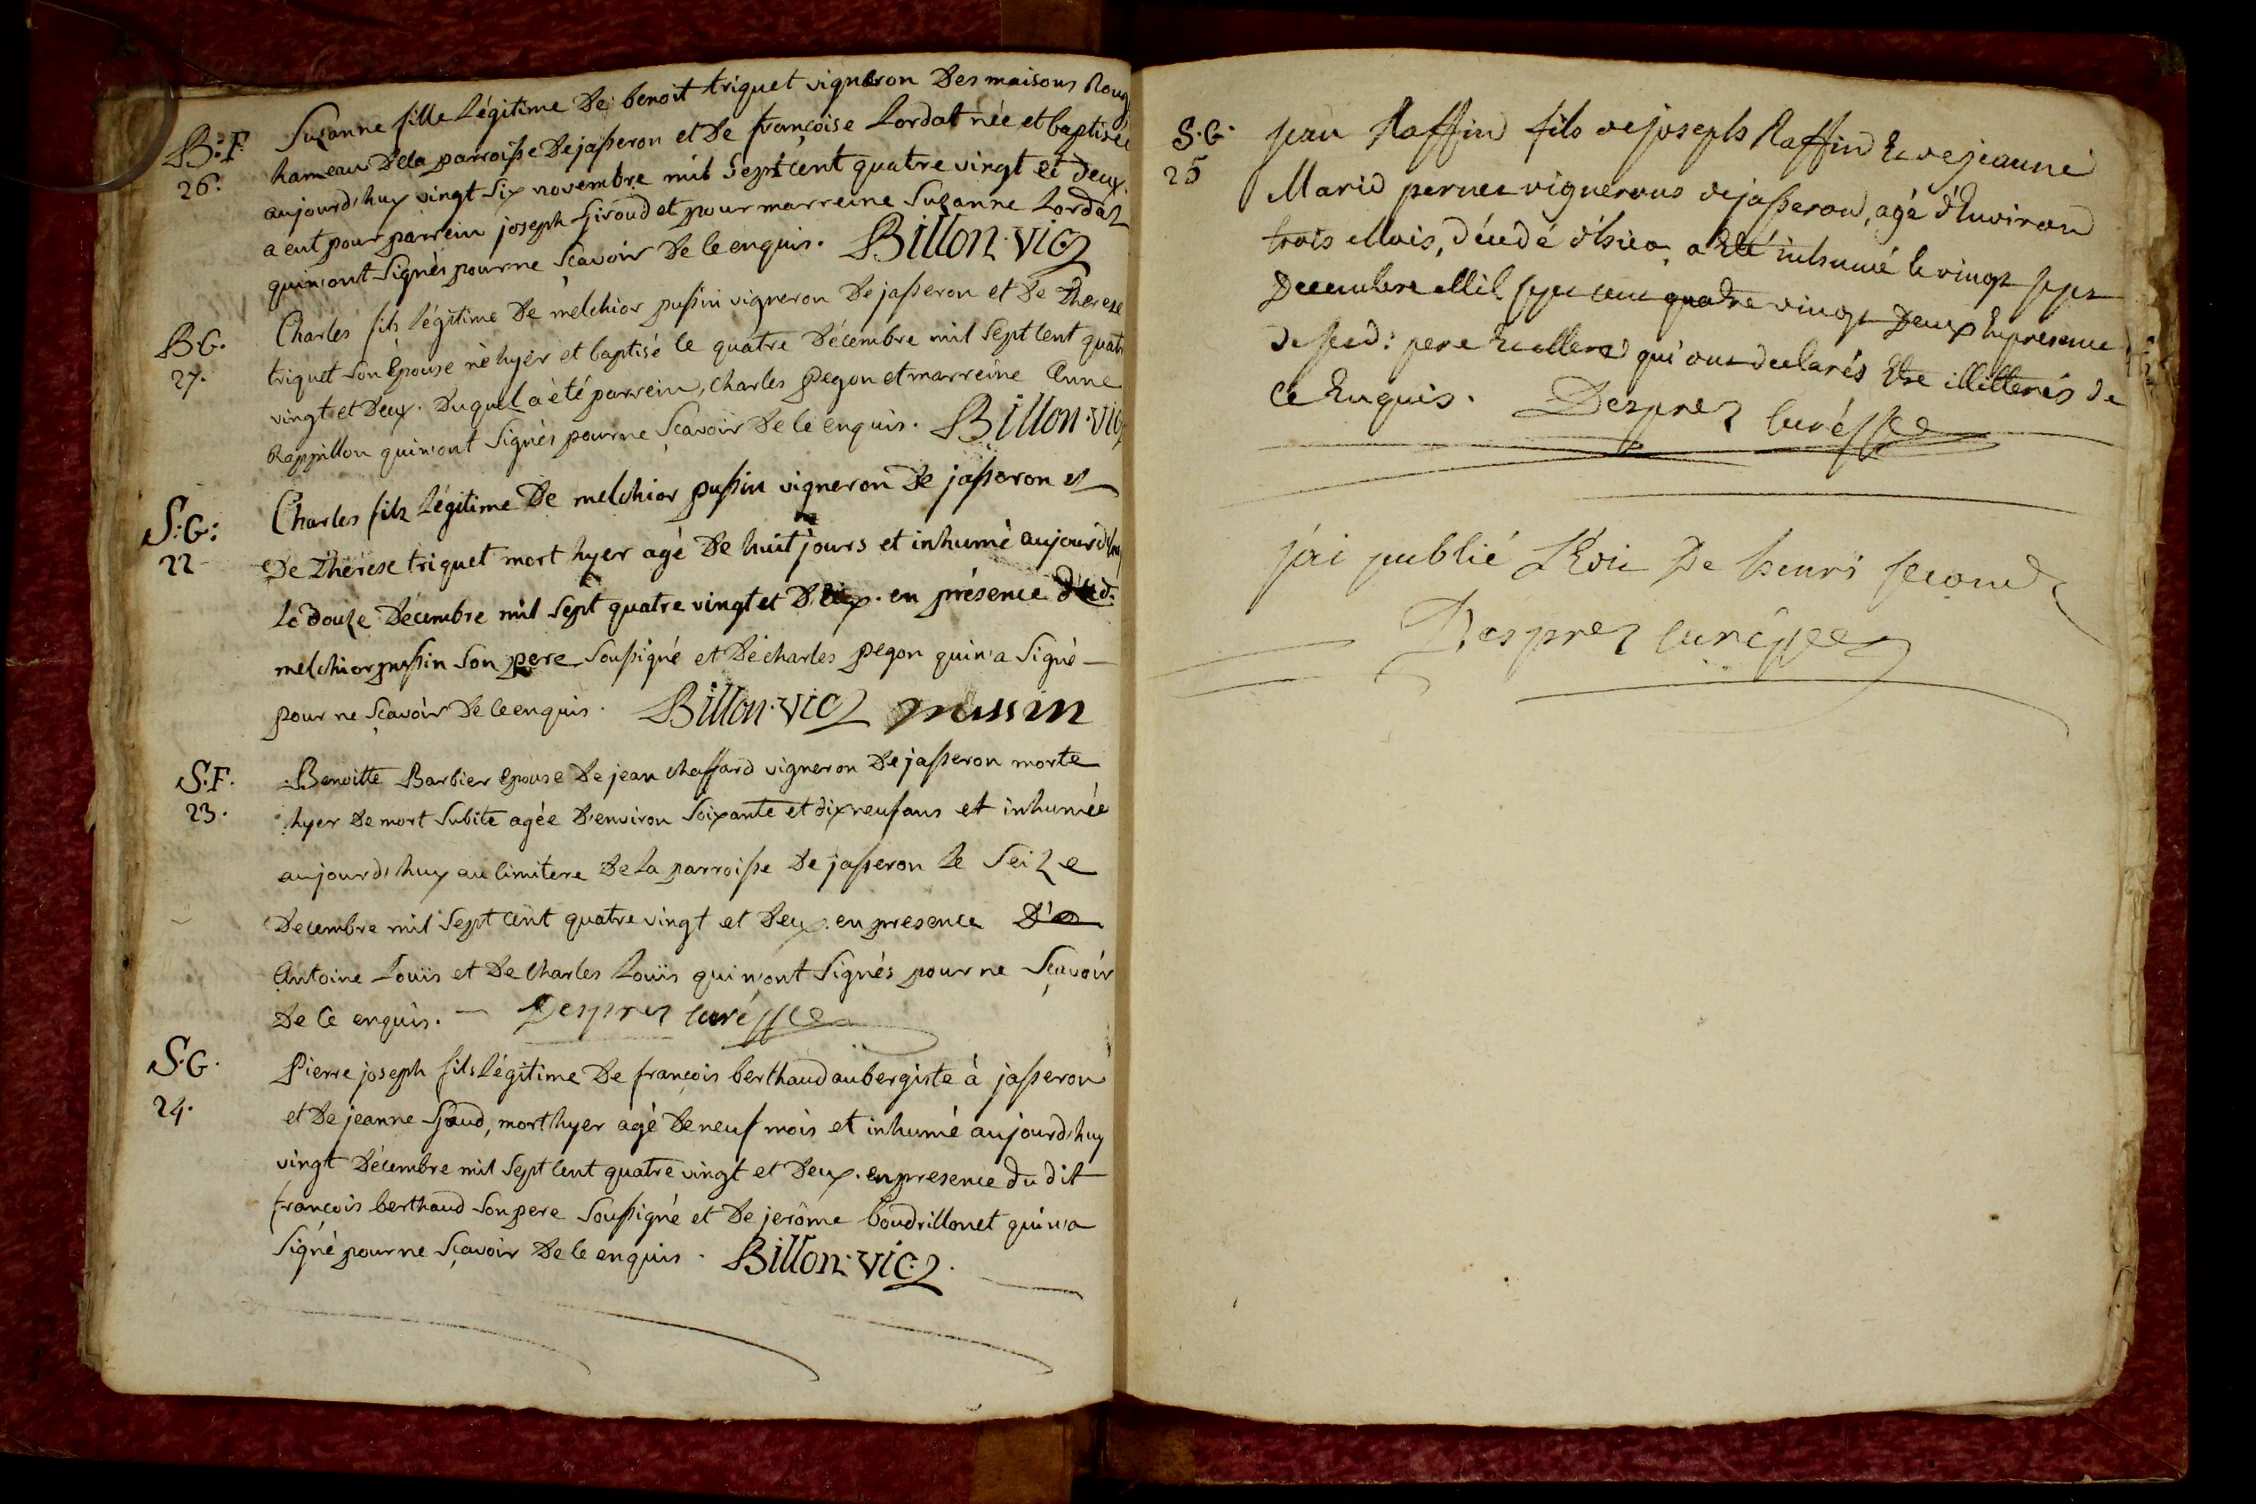 B. F.
26.
Suzanne fille légitime De benoit triquet vigneron Des maisons Roug
hameau Dela parroisse De jasseron et De françoise Lordat née et baptisée
aujourd'huy vingt six novembre mil Sept cent quatre vingt et deux.
a eut pour parrein joseph Giroud et pour marreine Suzanne Lordat
qui n'ont Signés pour ne Sçavoir De ce enquis. Billon. vic.
B. G.
27.
Charles fils légitime De melchior pussin vigneron De jasseron et De Therese
triquet Son Epouse né hyer et baptisé le quatre Décembre mil Sept Cent quatr
vingt et Deux. Duquel a été parrein, Charles pegon et marreine Anne
Rappillon qui n'ont Signés pour ne Sçavoir De ce enquis. Billon. vic.
S. G:
22
Charles fils légitime De melchior pussin vigneron De jasseron et
De Thérèse triquet mort hyer agé De huit jours et inhumé aujourd'huy
le douze Décembre mil Sept quatre vingt et Deux. en présence dud.
melchior pussin Son pere Soussigné et De charles pegon qui n'a Signé
pour ne Sçavoir De ce enquis. Billon. vic. pussin
S. F.
23.
Benoitte Barbier Epouse De jean Chaffard vigneron De jasseron morte
hyer De mort Subite agée D'environ Soixante et dix neuf ans et inhumée
aujourd'huy au Cimitere De la parroisse De jasseron le Seize
Decembre mil Sept cent quatre vingt et Deux. en presence
Antoine Louis et De Charles Louis qui n'ont Signés pour ne Sçavoir
De Ce enquis. Desprez curé
S. G.
24.
Pierre joseph fils légitime De françois berthaud aubergiste à jasseron
et De jeanne, mort hyer agé De neuf mois et inhumé aujourd'huy
vingt Décembre mil Sept Cent quatre vingt et Deux. en presence du dit
françois berthaud Son pere Soussigné et De jerôme boudrillonet qui n'a
Signé pour ne Sçavoir De Ce enquis. Billon. vic.
S. G.
25
jean Raffin fils de joseph Raffin Et de jeanne
Marie pernet vignerons de jasseron, agé d'Environ
trois Mois, décédé d'hier, a Eté inhumé le vingt sept
Decembre Mil sept cent quatre vingt Deux En presence
pere qui ont declarés Etre illitterés de
Ce Enquis. Desprez Curé
j'ai publié L'Edit De henri second
Desprez curé